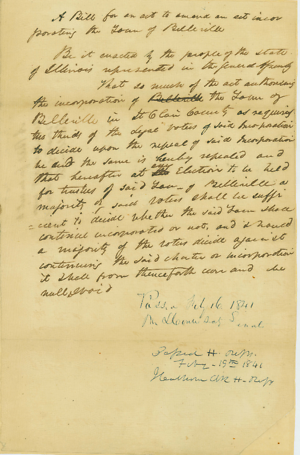 A Bill for an act to amend an act incor
porating the Town of Belleville
Be it enacted by the people of the state
of Illinois represented in the general assembly
That so much of the act authorising
the incorporation of Belleville the Town of
Belleville in St Clair County as requires
two thirds of the legal votes of said Incorporation
to decide upon the repeal of said Incorporation
be and the same is hereby repealed and
that hereafter at any Election to be held
for trustees of said Town of Belleville a
majority of said votes shall be suffi
cient to decide whether the said Town shall
continue incorporated or not, and should
a majority of the votes decide against
continuing the said charter or incorporation
it shall from thenceforth cease and be
null & void
Passed Feby 16 1841
Senate
Passed H. Reps.
Feby 19th 1841
H. Reps